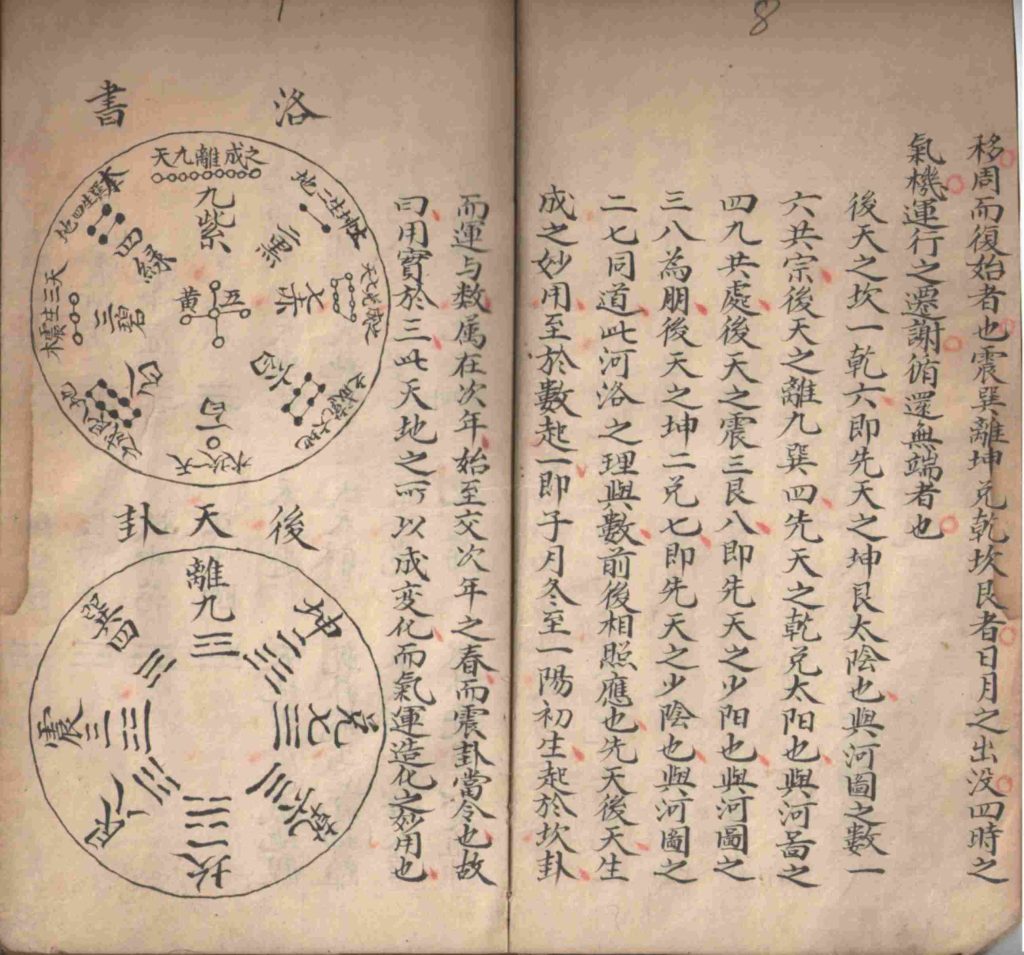 8
移周而復始者也震巽離坤兑乾坎艮者日月之出没四時之
氣機運行之遷謝循還無端者也
後天之坎一乾六即先天之坤艮太陰也與河圖之數一
六共宗後天之離九巽四先天之乾兑太阳也與河啚之
四九共處後天之震三艮八即先天之少阳也與河圖之
三八為朋後天之坤二兑七即先天之少陰也與河圖之
二七同道此河洛之理與數前後相照應也先天後天生
成之妙用至於數起一即子月冬至一陽初生起於坎卦
而運与数属在次年始至交次年之春而震卦當令也故
曰用實於三此天地之所以成变化而氣運造化之妙用也
洛書
之成離九天
九紫
地二生坤
二黑
七赤
六白
一白
天一坎水
八白
三碧
天三生震木
四緑
地四生巽木
五黄
後天卦
離九
坤二
兑七
乾六
坎一
艮八
震三
巽四